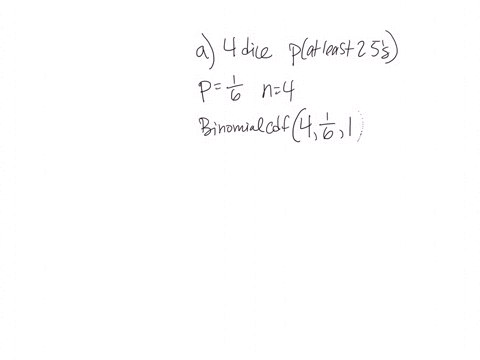 a) 4 dice p(at least 2 5's)
P = 1/6 n=4
Binomialcdf(4, 1/6, 1)